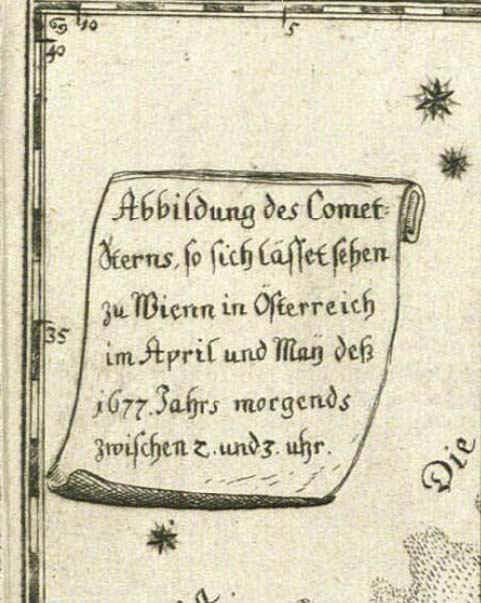 10
5
40
Abbildung des Comet-
Sterns, so sich lässet sehen
zu Wienn in Österreich
35
im April und Maÿ deß
1677. Jahrs morgends
zwischen 2. und 3. uhr.
Die